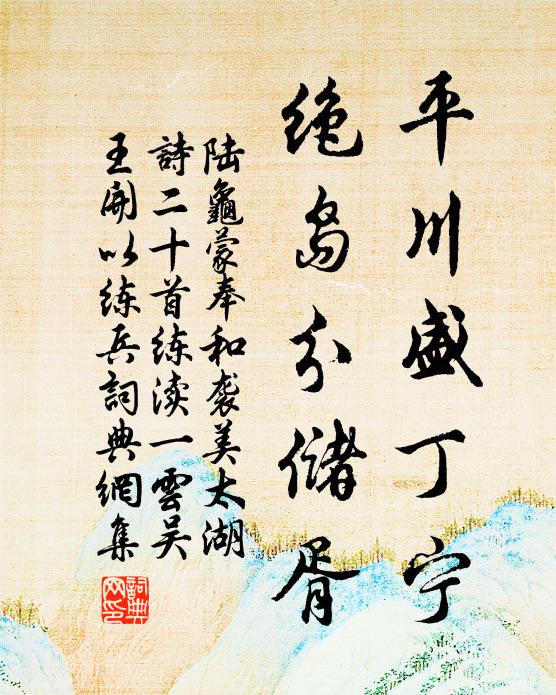 平川盛丁宁
绝岛分储胥
陆龜蒙奉和袭美太湖
詩二十首练渎一雲吴
王開以练兵詞典網集
詞典网印